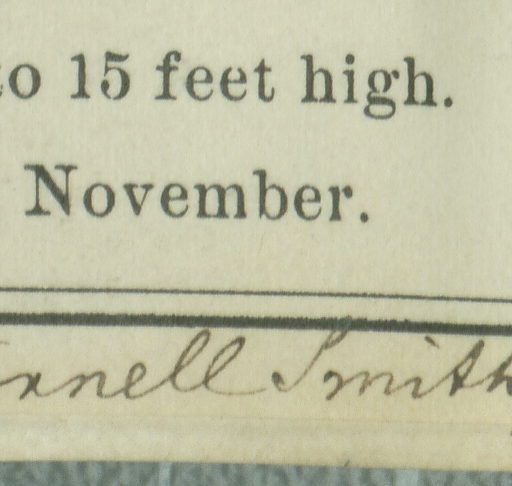 to 15 feet high.
November.
nnell Smith